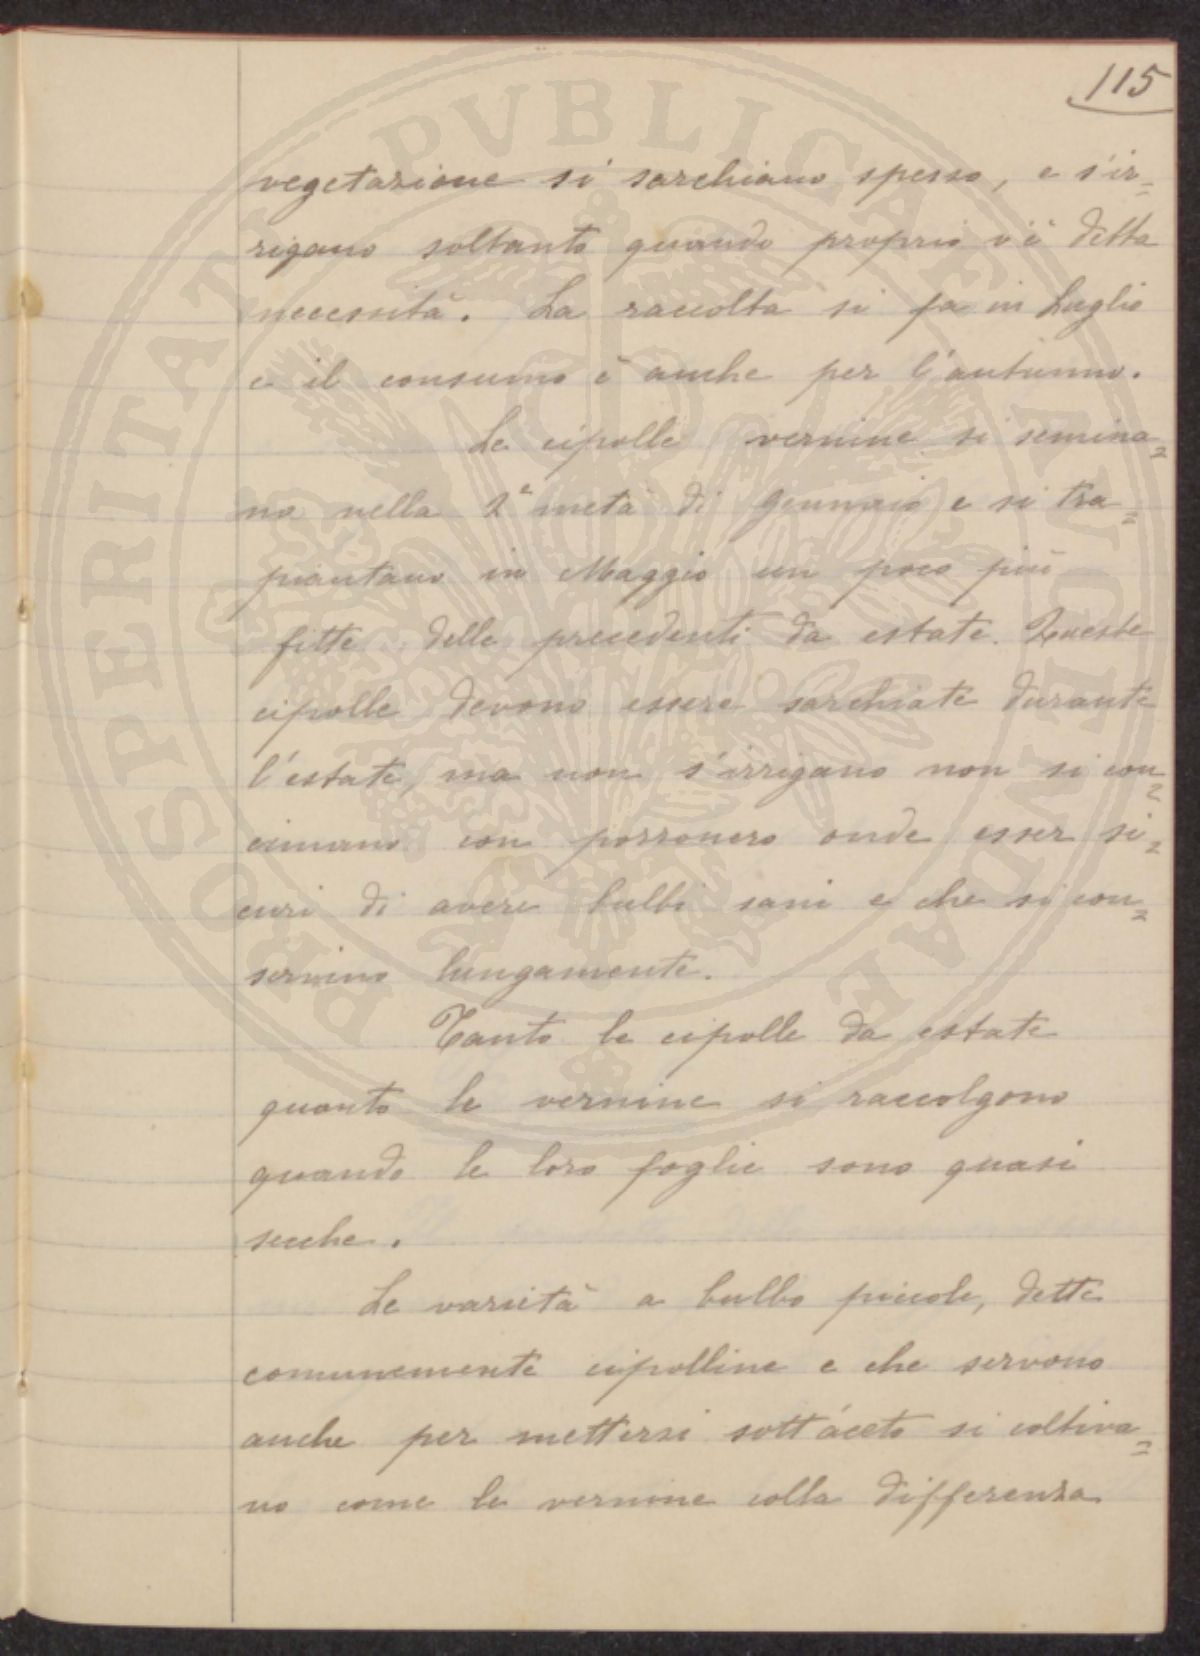 115
vegetazione si sarchiano spesso, e s'ir=
rigano soltanto quando proprio v'è detta
necessità. La raccolta si fa in Luglio
e il consumo è anche per l'autunno.
Le cipolle vernine si semina=
no nella 2ª metà di Gennaio e si tra=
piantano in Maggio un poco più
fitte delle precedenti da estate. Queste
cipolle devono essere sarchiate durante
l'estate, ma non s'irrigano non si con=
cimano con pozzonero onde esser si=
curi di avere bulbi sani e che si con=
servino lungamente.
Tanto le cipolle da estate
quanto le vernine si raccolgono
quando le loro foglie sono quasi
secche.
Le varietà a bulbo piccolo, dette
comunemente cipolline e che servono
anche per mettersi sott'aceto si coltiva=
no come le vernine colla differenza
PROSPERITATI PVBLICAE AVGENDAE